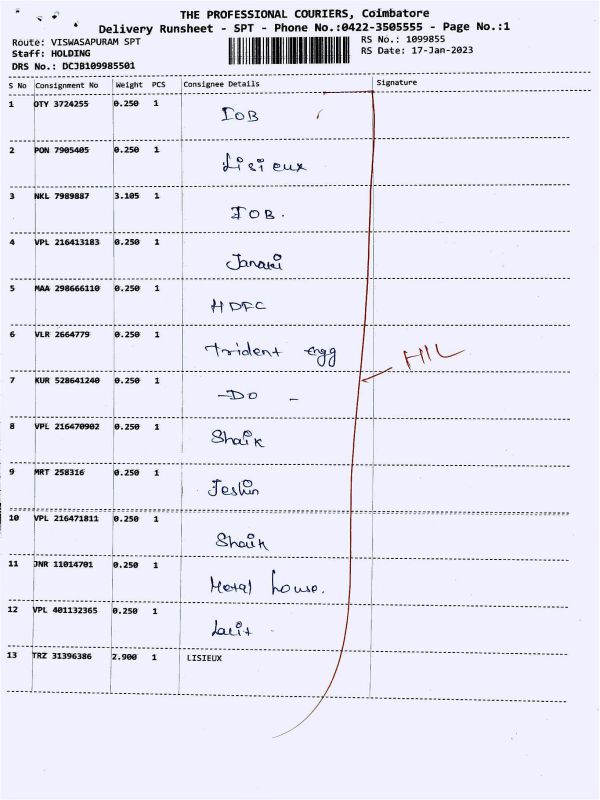 THE PROFESSIONAL COURIERS, Coimbatore
Delivery Runsheet - SPT - Phone No.:0422-3505555 - Page No.:1
Route: VISWASAPURAM SPT
RS No.: 1099855
Staff: HOLDING
RS Date: 17-Jan-2023
DRS No.: DCJB109985501
S No Consignment No Weight PCS Consignee Details Signature
1 OTY 3724255 0.250 1 IOB
2 PON 7905405 0.250 1 Lisieux
3 NKL 7989887 3.105 1 IOB.
4 VPL 216413183 0.250 1 Janaki
5 MAA 298666110 0.250 1 HDFC
6 VLR 2664779 0.250 1 Trident engg
7 KUR 528641240 0.250 1 -Do -
8 VPL 216470902 0.250 1 Shaik
9 MRT 258316 0.250 1 Jeshin
10 VPL 216471811 0.250 1 Shaik
11 JNR 11014701 0.250 1 Metal house.
12 VPL 401132365 0.250 1 Lalit
13 TRZ 31396386 2.900 1 LISIEUX